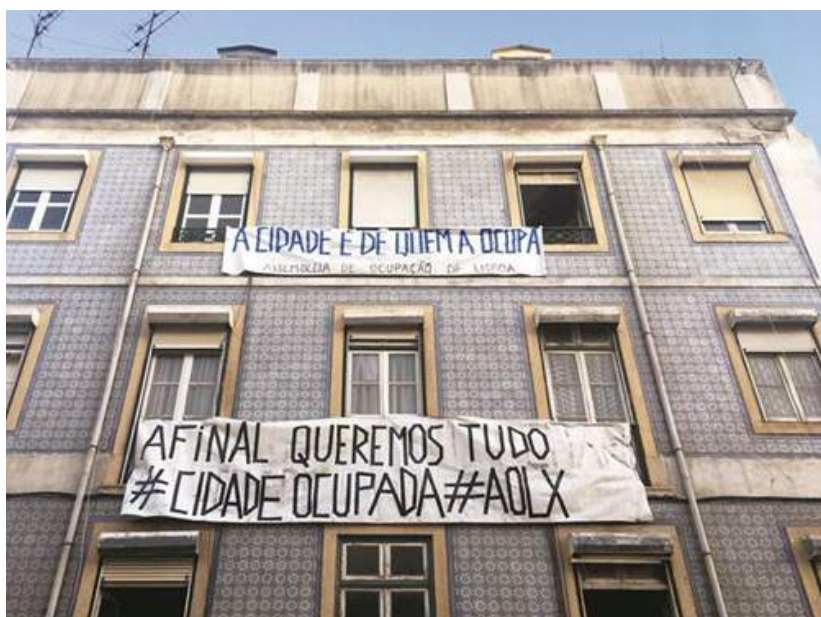 A CIDADE É DE QUEM A OCUPA
ASSEMBLEIA DE OCUPAÇÃO DE LISBOA
AFiNAL QUEREMOS TUDO
#CIDADEOCUPADA#AOLX